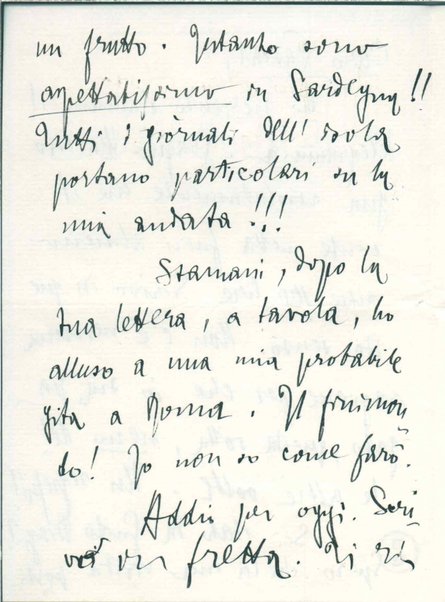 un frutto. Intanto sono
aspettatissimo in Sardegna!!
Tutti i giornali dell'isola
portano particolari su la
mia andata!!!
Stamani, dopo la
tua lettera, a tavola, ho
alluso a una mia probabile
gita a Roma. Il finimon
do! Io non so come farò.
Addio per oggi. Scri
in fretta.